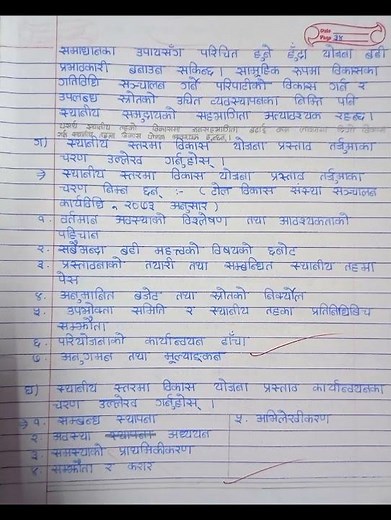 Date
Page 38
समाधानका उपायसँग परिचित हुने हुँदा योजना बढी
प्रभावकारी बनाउन सकिन्छ । सामूहिक रूपमा विकासका
गतिविधि सञ्चालन गर्ने परिपाटीको विकास गर्न र
उपलब्ध स्रोतको उचित व्यवस्थापनका निम्ति पनि
स्थानीय समुदायको सहभागिता अत्यावश्यक रहन्छ ।
ग) स्थानीय स्तरमा विकास योजना प्रस्ताव तर्जुमाका
चरण उल्लेख गर्नुहोस् ।
→ स्थानीय स्तरमा विकास योजना प्रस्ताव तर्जुमाका
चरण निम्न छन् :- (टोल विकास संस्था सञ्चालन
कार्यविधि, २०७३ अनुसार)
१. वर्तमान अवस्थाको विश्लेषण तथा आवश्यकताको
पहिचान
२. सबैभन्दा बढी महत्वको विषयको छनोट
३. प्रस्तावनाको तयारी तथा सम्बन्धित स्थानीय तहमा
पेस
४. अनुमानित बजेट तथा स्रोतको निर्क्योल
५. उपभोक्ता समिति र स्थानीय तहका प्रतिनिधिबिच
सम्झौता
६. परियोजनाको कार्यान्वयन ढाँचा
७. अनुगमन तथा मूल्याङ्कन
घ) स्थानीय स्तरमा विकास योजना प्रस्ताव कार्यान्वयनका
चरण उल्लेख गर्नुहोस् ।
→ १. सम्बन्ध स्थापना ५. अभिलेखीकरण
२ अवस्था स्थापना अध्ययन
३ समस्याको प्राथमिकीकरण
४ सम्झौता र करार